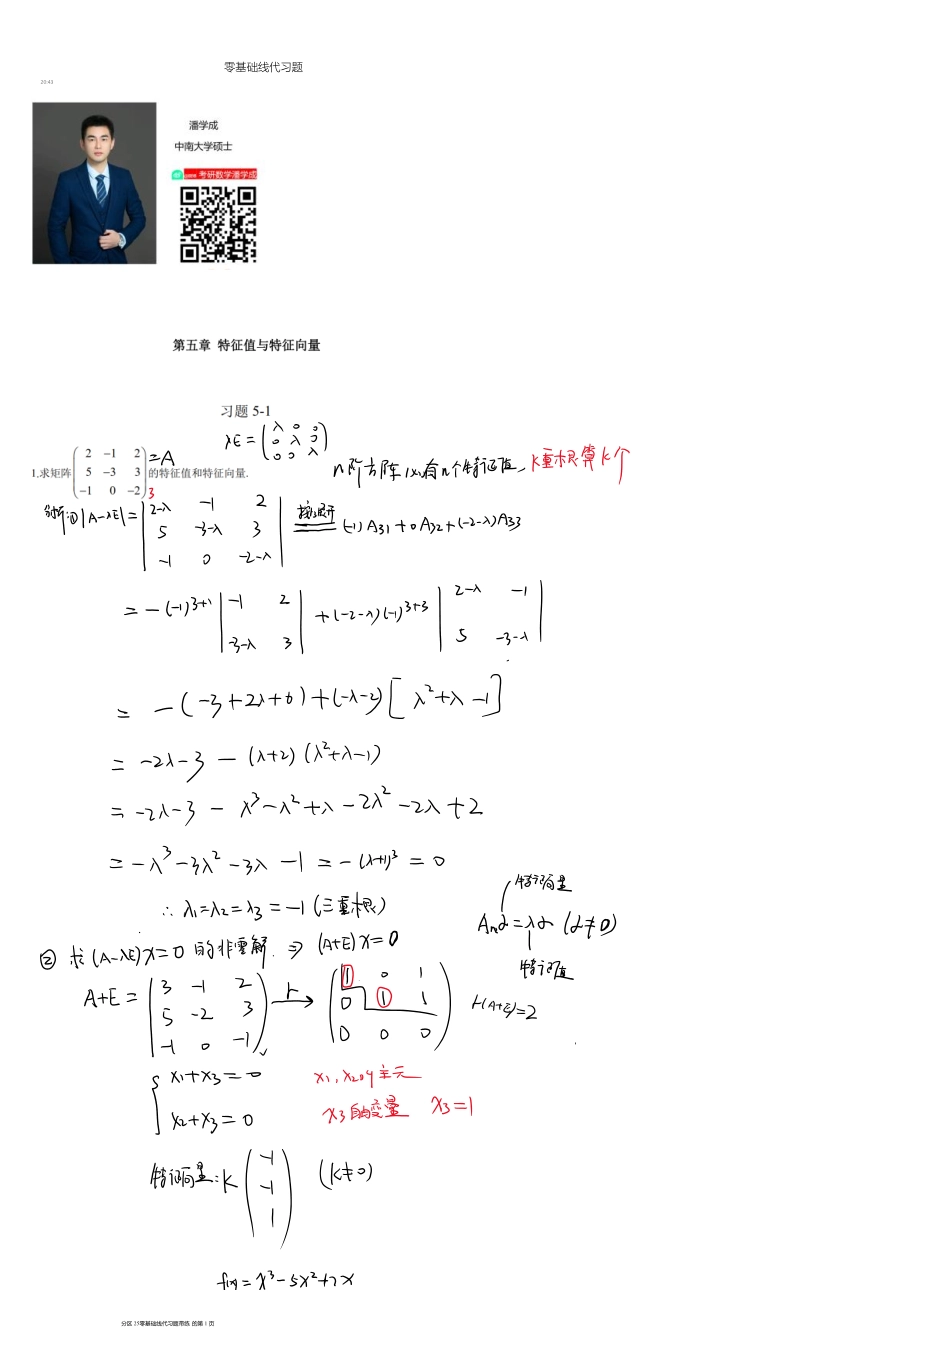 零基础线代习题
20:43
潘学成
中南大学硕士
考研数学潘学成
第五章 特征值与特征向量
习题 5-1
λE = (λ 0 0
0 λ 0
0 0 λ)
1.求矩阵 (2 −1 2
5 −3 3
−1 0 −2) = A 的特征值和特征向量.
n阶方阵,有n个特征值, k重根算k个
3
分析:① |A-λE| = |2-λ -1 2
5 -3-λ 3
-1 0 -2-λ| 按3展开 (-1)A31+0A32+(-2-λ)A33
= -(-1)^3+1 |-1 2
-3-λ 3| + (-2-λ)(-1)^3+3 |2-λ -1
5 -3-λ|
= -(-3+2λ+6)+(-λ-2)[λ²+λ-1]
= -2λ-3 - (λ+2)(λ²+λ-1)
= -2λ-3 - λ³-λ²+λ-2λ²-2λ+2
= -λ³-3λ²-3λ-1 = -(λ+1)³ = 0
∴ λ1=λ2=λ3=-1 (三重根)
特征向量
Anα=λα (α≠0)
特征值
② 求(A-λE)x=0 的非零解. ⇒ (A+E)x=0
A+E = (3 -1 2
5 -2 3
-1 0 -1) r→ (1 0 1
0 1 1
0 0 0)
r(A+E)=2
{x1+x3=0
x2+x3=0
x1,x2为主元
x3自由变量 x3=1
特征向量:k(-1
-1
1) (k≠0)
f(x)=x³-5x²+7x
分区 25零基础线代习题带练 的第 1 页